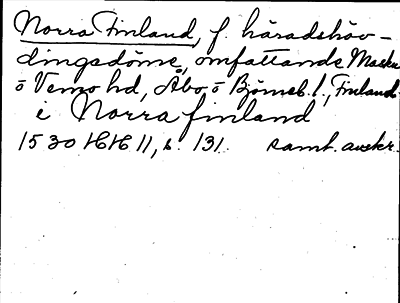 Norra Finland, f. häradshöv-
dingsdöme, omfattande Masku
o Vemo hd, Åbo o Björneb. l., Finland.
i Norra finland
1530 HH 11, s. 131. samt. avskr.